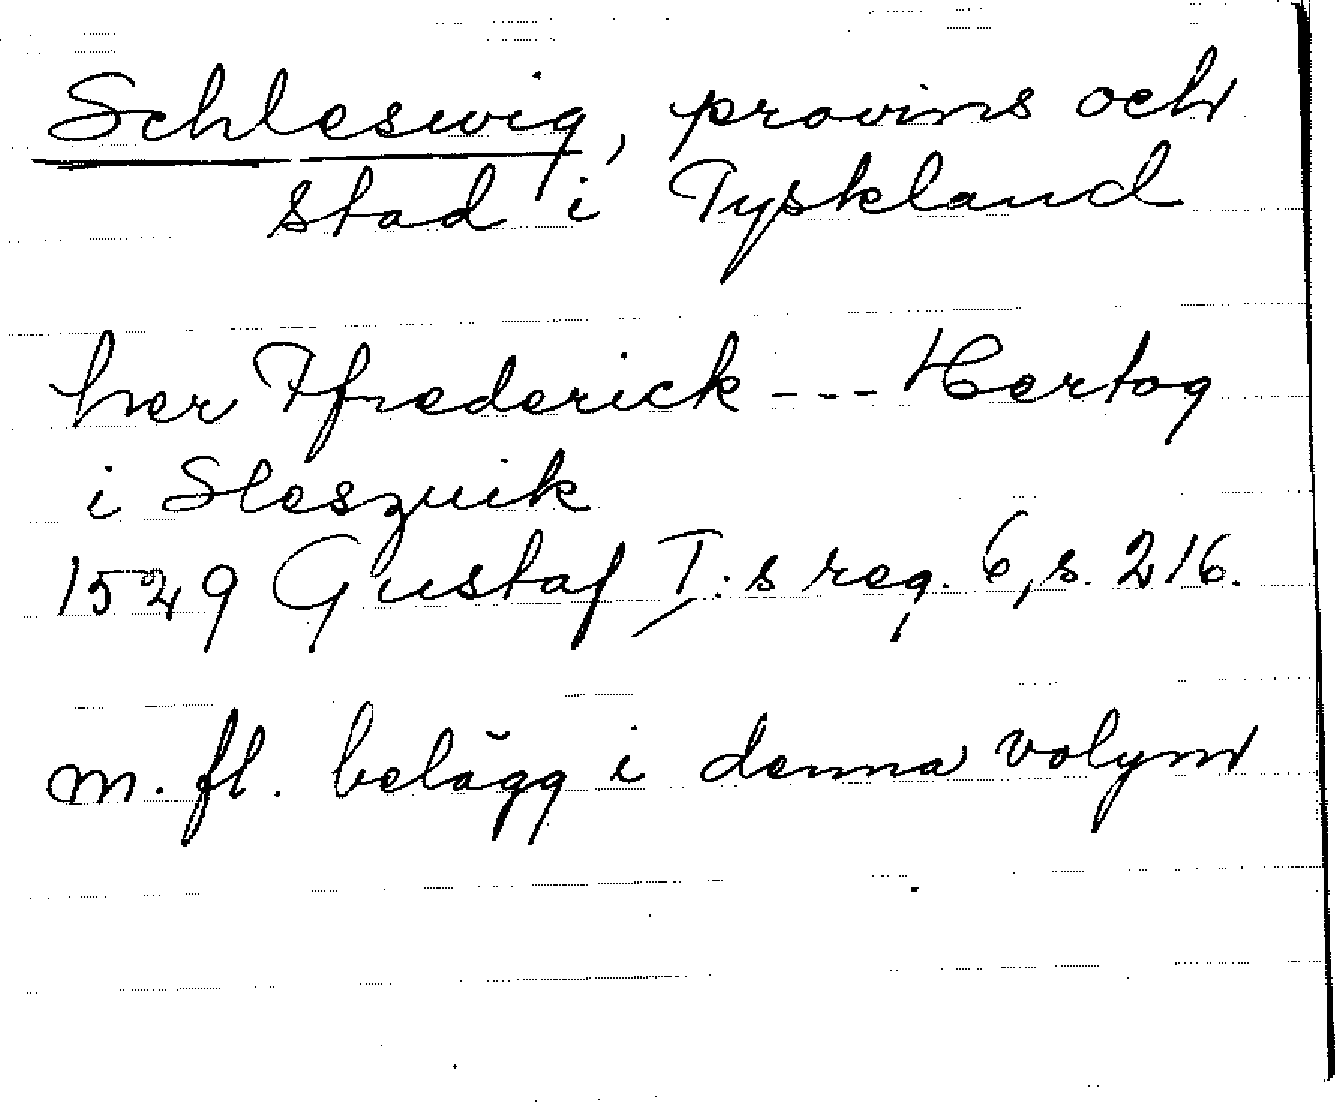 Schleswig, provins och
stad i Tyskland
her Ffrederick --- Hertog
i Sleszuik
1529 Gustaf I:s reg. 6, s. 216.
m. fl. belägg i denna volym